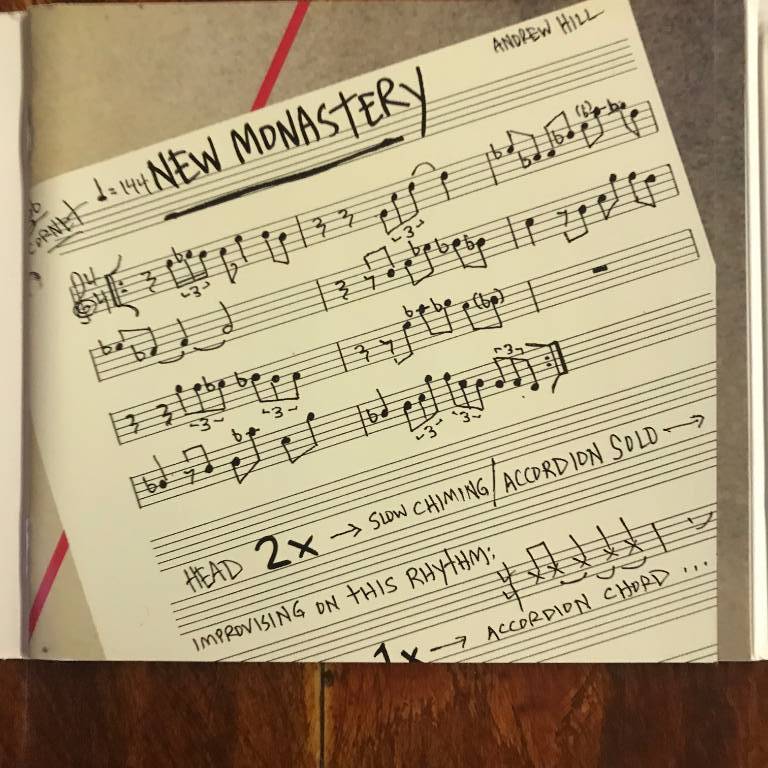 ANDREW HILL
NEW MONASTERY
♩=144
CORNET
4
4
-3-
-3-
(b)
(b)
-3-
-3-
-3-
-3-
-3-
HEAD 2x → SLOW CHIMING/ACCORDION SOLO →
IMPROVISING ON THIS RHYTHM: 4
4
1x → ACCORDION CHORD ...